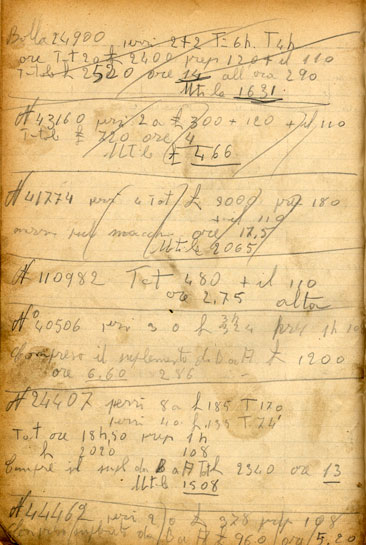 Bolla 24900 pezzi 2+2 T=6h. T4h
ore Tot 2a £ 2400 prep 120 + il 110
Totale £ 2520 ore 14 all ora 290
Utile 1631.
N 43160 pezzi 2 a £ 300 + 120 + il 110
Total £ 720 ore 4
Utile £ 466
N 41774 pezzi 4 Tot £ 9000 prep 180
+ il 110
ore 17,5
Utile 2065
N 110982 Tot 480 + il 110
ore 2,75 alta
N° 40506 pezzi 30 prep 1h
Compreso il suplemento di B a A £ 1200
ore 6.60 286
N 24407 pezzi 8 a h 185 T 170
pezzi 4 a h 135 T 74
Tot ore 18h,50 prep 1h
h 2020 108
Compre il supl da B a A Tot h 2340 ore 13
Utile 1508
N 44462 pezzi 2 a £ 378 prep 108
£ 960 ora 5.20